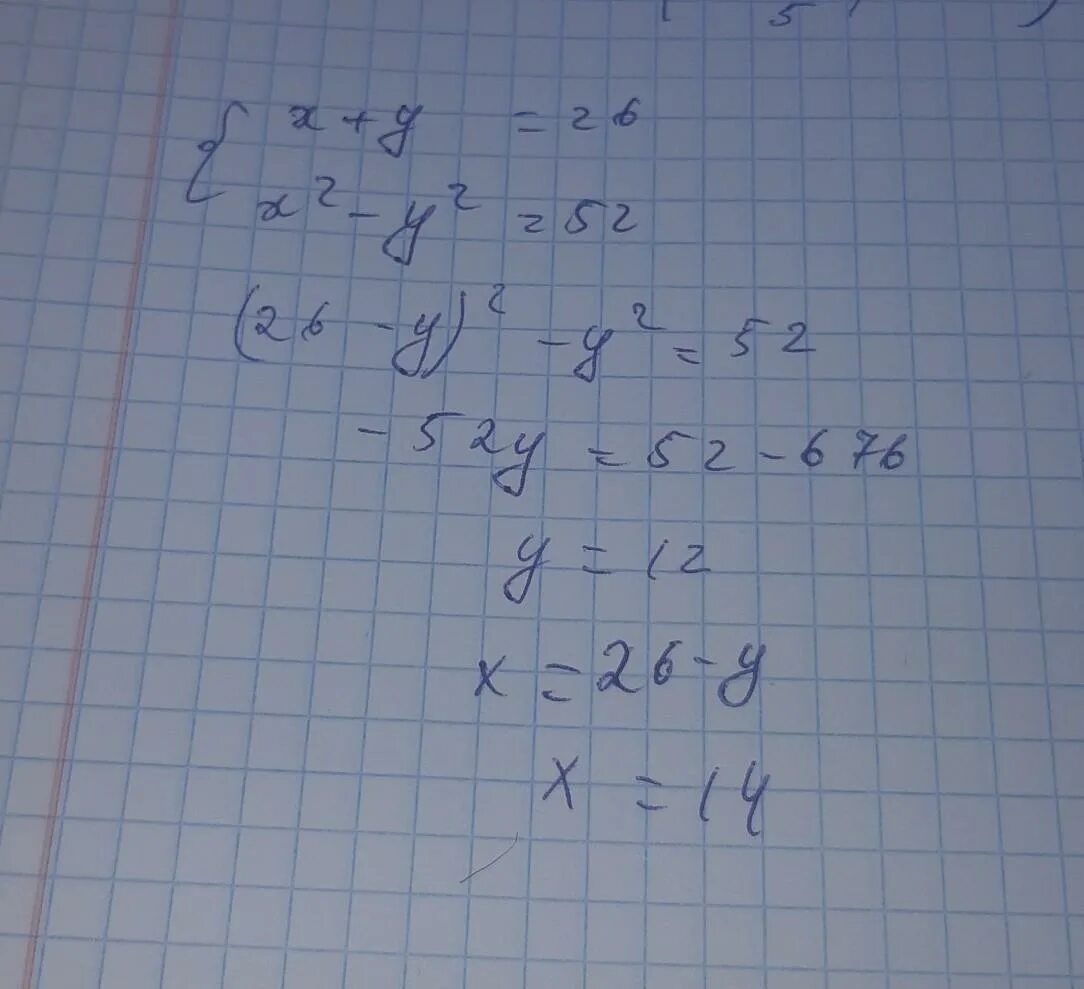 x + y = 26
x² - y² = 52
(26 - y)² - y² = 52
- 52y = 52 - 676
y = 12
x = 26 - y
x = 14